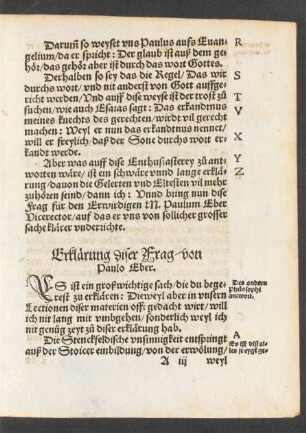 Darumb so weyset vns Paulus aufs Euan-
gelium/ da er spricht: Der glaub ist auß dem ge-
hör/ das gehör aber ist durch das wort Gottes.
Derhalben so sey das die Regel/ Das wir
durchs wort/ vnd nit anderst von Gott auffge-
richt werden/ Vnd auff dise weyß ist der trost zu
suchen/ wie auch Esaias sagt: Das erkandtnus
meines knechts des gerechten/ wirdt vil gerecht
machen: Weyl er nun das erkandtnus nennet/
will er freylich/ daß der Sone durchs wort er-
kandt werde.
Aber was auff dise Enthusiasterey zu ant-
wotten wäre/ ist ein schwäre vnnd lange erklä-
rung/ dauon die Gelerten vnd Eltesten vil mehr
zuhören seind/ dann ich: Vnnd bring nun dise
frag für den Erwirdigen M. Paulum Eber
Vicerector/ auf das er vns von sollicher grosser
sach klärer vnderrichte.
R
S
T
V
X
Y
Z
Erklärung diser Frag von
Paulo Eber.
ES ist ein groß wichtige sach/ die du bege-
rest zu erklären: Dieweyl aber in vnsern
Lectionen diser materien offt gedacht wirt/ will
ich nit lang mit vmbgehen/ sonderlich weyl ich
nit genüg zeyt zu diser erklärung hab.
Des andern
Philosophi
antwort.
Die Stenckfeldische vnsinnigkeit entspringt
auß der Stoicer einbildung/ von der erwölung/
A
A iij weyl